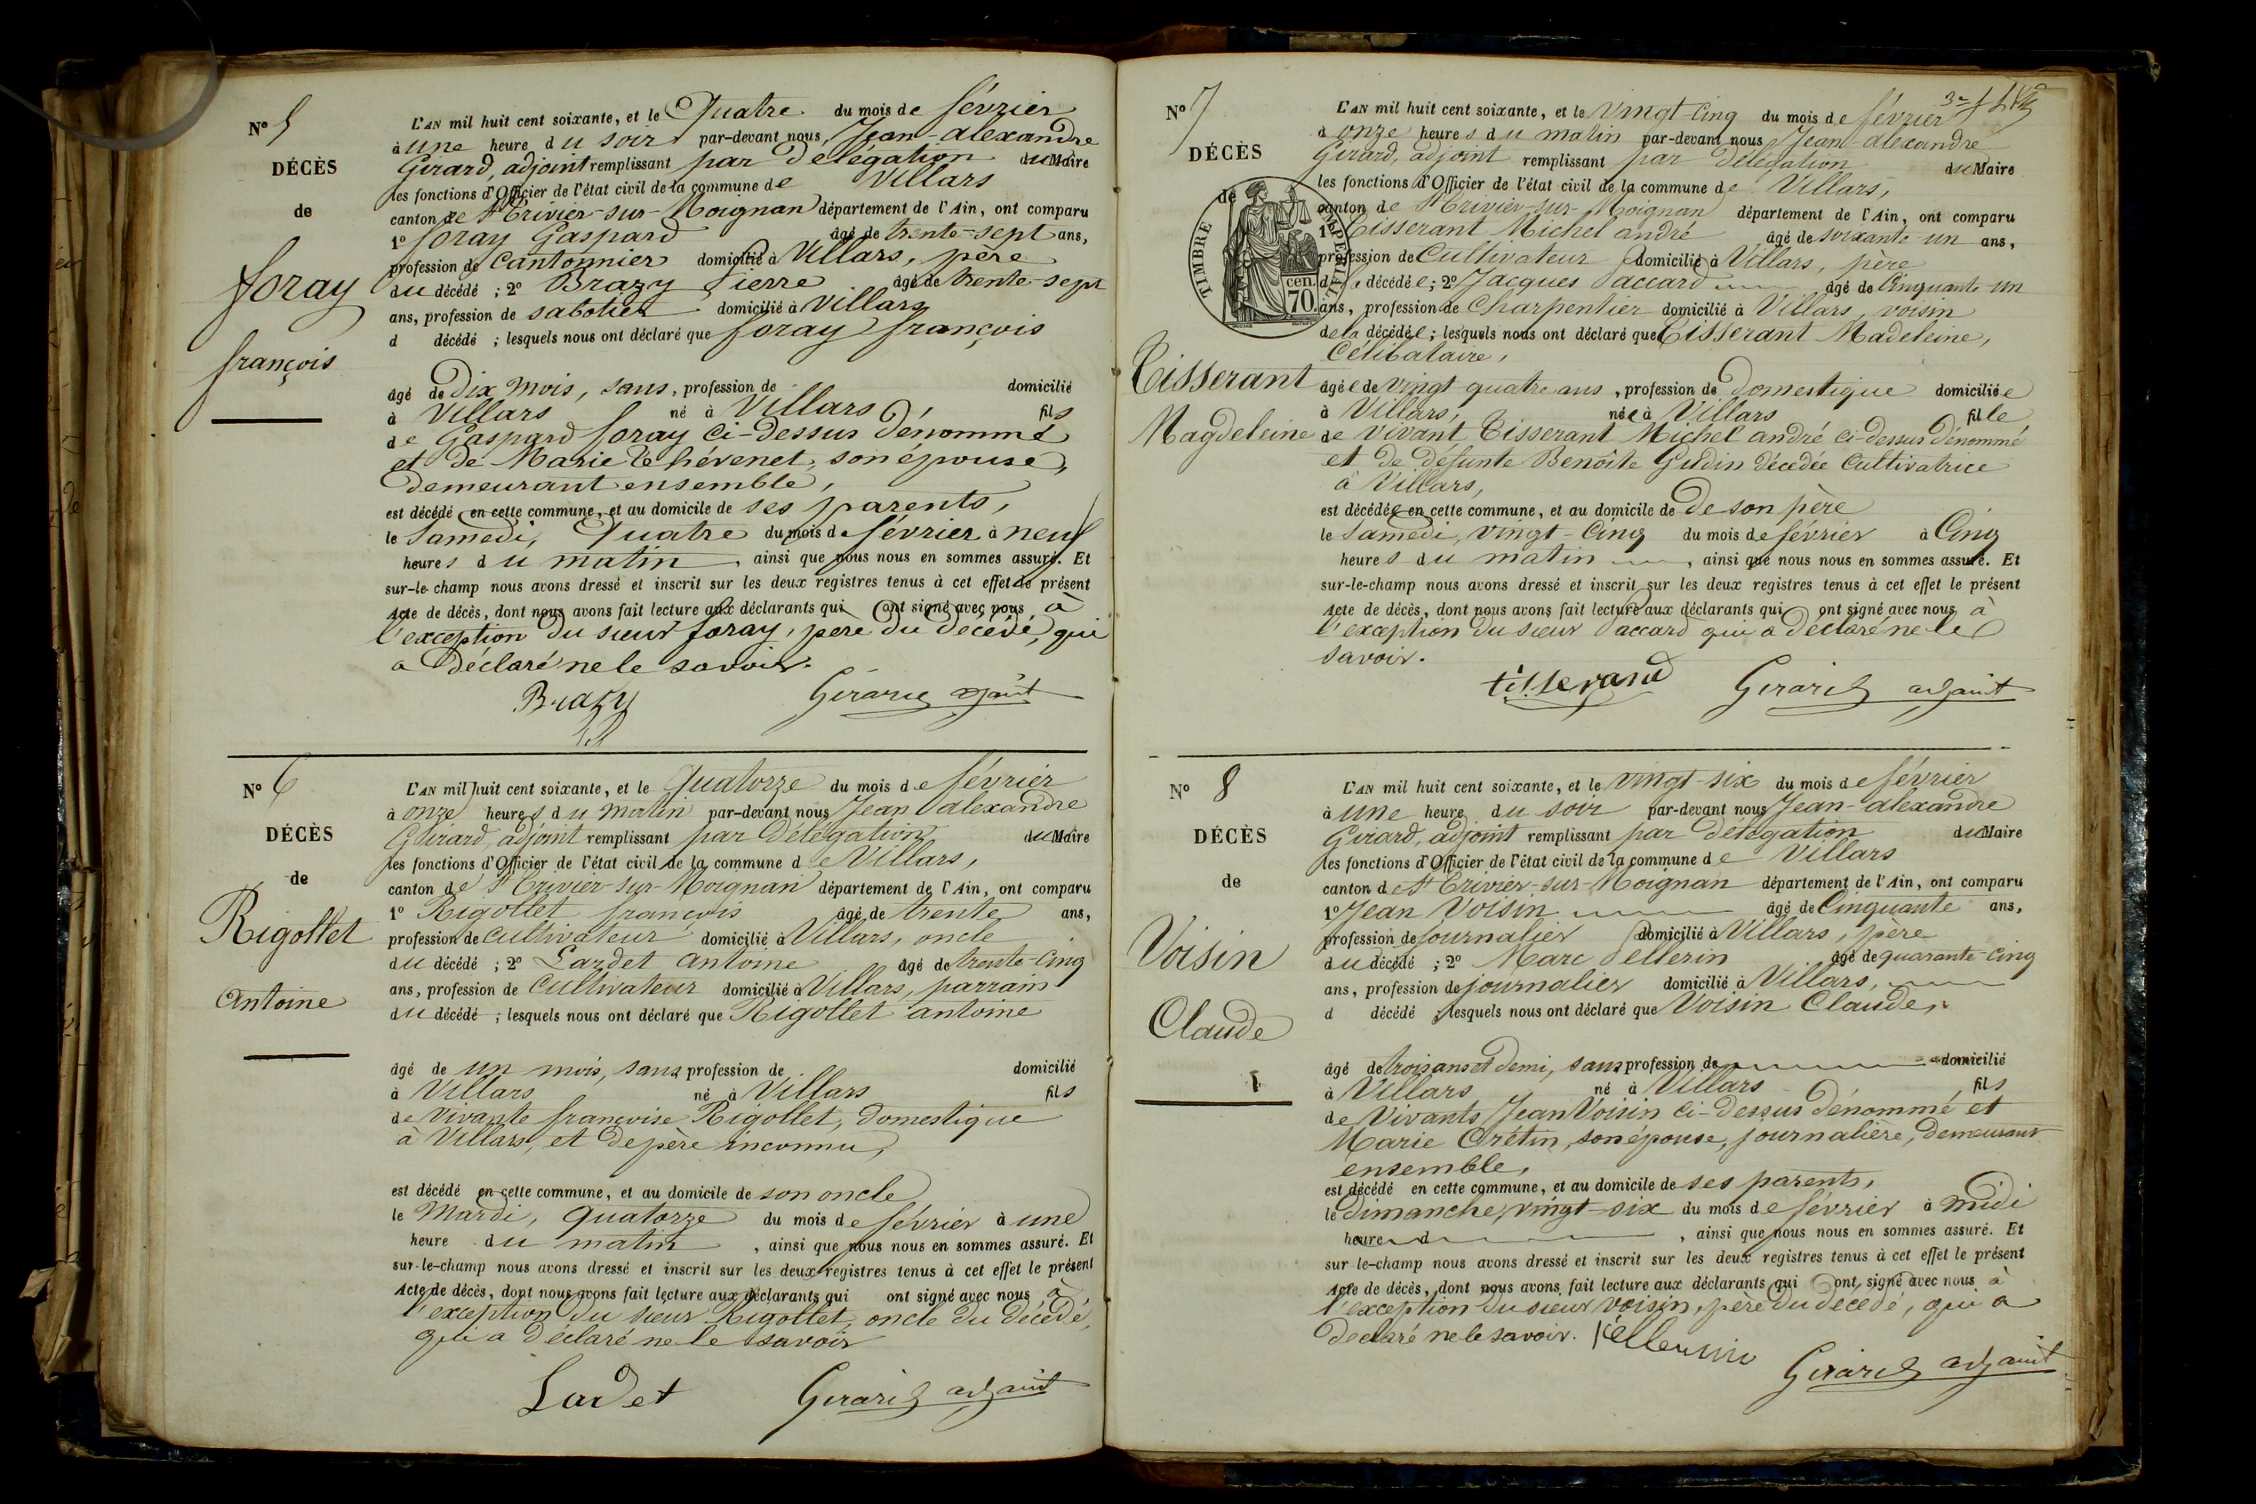 N° 5
DÉCÈS
de
foray
françois
L'AN mil huit cent soixante, et le Quatre du mois de février
à une heure du soir par-devant nous, Jean-alexandre
Girard, adjoint remplissant par délégation du Maire
les fonctions d'Officier de l'état civil de la commune de Villars
canton de St Trivier-sur-Moignan département de l'Ain, ont comparu
1° foray Gaspard âgé de trente-sept ans,
profession de cantonnier domicilié à Villars, père
du décédé ; 2° Brazy Pierre âgé de trente-sept
ans, profession de sabotier domicilié à Villars
d décédé ; lesquels nous ont déclaré que foray françois
âgé de Dix mois, sans, profession de domicilié
à Villars né à Villars, fils
de Gaspard foray ci-dessus dénommé
et de Marie Chévenet, son épouse,
demeurant ensemble,
est décédé en cette commune, et au domicile de ses parents,
le Samedi, Quatre du mois de février à neuf
heures du matin, ainsi que nous nous en sommes assuré. Et
sur-le-champ nous avons dressé et inscrit sur les deux registres tenus à cet effet le présent
Acte de décès, dont nous avons fait lecture aux déclarants qui ont signé avec nous à
l'exception du sieur foray, père du décédé, qui
a déclaré ne le savoir.
Brazy Girard adjoint
N° 6
DÉCÈS
de
Rigollet
Antoine
L'AN mil huit cent soixante, et le Quatorze du mois de février
à onze heures du matin par-devant nous Jean alexandre
Girard, adjoint remplissant par délégation du Maire
les fonctions d'Officier de l'état civil de la commune de Villars,
canton de St Trivier-sur-Moignan département de l'Ain, ont comparu
1° Rigollet françois âgé de trente ans,
profession de cultivateur domicilié à Villars, oncle
du décédé ; 2° Lardet antoine âgé de trente-cinq
ans, profession de Cultivateur domicilié à Villars, parrain
du décédé ; lesquels nous ont déclaré que Rigollet antoine
âgé de un mois, sans, profession de domicilié
à Villars né à Villars fils
de vivante françoise Rigollet, domestique
à Villars, et de père inconnu,
est décédé en cette commune, et au domicile de son oncle
le Mardi, quatorze du mois de février à une
heure du matin, ainsi que nous nous en sommes assuré. Et
sur-le-champ nous avons dressé et inscrit sur les deux registres tenus à cet effet le présent
Acte de décès, dont nous avons fait lecture aux déclarants qui ont signé avec nous à
l'exception du sieur Rigollet, oncle du décédé,
qui a déclaré ne le savoir
Lardet Girard adjoint
N° 7
DÉCÈS
de
TIMBRE IMPÉRIAL
70 cen.
Tisserant
Magdeleine
L'AN mil huit cent soixante, et le vingt-cinq du mois de février
à onze heures du matin par-devant nous Jean-alexandre
Girard, adjoint remplissant par délégation du Maire
les fonctions d'Officier de l'état civil de la commune de Villars,
canton de St Trivier-sur-Moignan département de l'Ain, ont comparu
1° Tisserant Michel andré âgé de soixante-un ans,
profession de Cultivateur domicilié à Villars, père
de la décédée ; 2° Jacques Paccard âgé de Cinquante-un
ans, profession de Charpentier domicilié à Villars, voisin
de la décédée ; lesquels nous ont déclaré que Tisserant Madeleine,
Célibataire,
âgée de vingt-quatre ans, profession de domestique domiciliée
à Villars, née à Villars fille
de vivant Tisserant Michel andré ci-dessus dénommé
et de défunte Benoîte Gudin décédée Cultivatrice
à Villars,
est décédée en cette commune, et au domicile de de son père
le Samedi, vingt-cinq du mois de février à Cinq
heures du matin, ainsi que nous nous en sommes assuré. Et
sur-le-champ nous avons dressé et inscrit sur les deux registres tenus à cet effet le présent
Acte de décès, dont nous avons fait lecture aux déclarants qui ont signé avec nous à
l'exception du sieur Paccard qui a déclaré ne le
savoir.
tisserand Girard adjoint
N° 8
DÉCÈS
de
Voisin
Claude
L'AN mil huit cent soixante, et le vingt-six du mois de février
à une heure du soir par-devant nous Jean-alexandre
Girard, adjoint remplissant par délégation du Maire
les fonctions d'Officier de l'état civil de la commune de Villars
canton de St Trivier-sur-Moignan département de l'Ain, ont comparu
1° Jean Voisin âgé de Cinquante ans,
profession de journalier domicilié à Villars, père
du décédé ; 2° Marc Pellerin âgé de quarante-cinq
ans, profession de journalier domicilié à Villars,
d décédé ; lesquels nous ont déclaré que Voisin Claude,
âgé de trois ans et demi, sans profession de domicilié
à Villars né à Villars fils
de Vivants Jean Voisin ci-dessus dénommé et
Marie Crétin, son épouse, journalière, demeurant
ensemble,
est décédé en cette commune, et au domicile de ses parents,
le Dimanche, vingt-six du mois de février à midi
heure d, ainsi que nous nous en sommes assuré. Et
sur-le-champ nous avons dressé et inscrit sur les deux registres tenus à cet effet le présent
Acte de décès, dont nous avons fait lecture aux déclarants qui ont signé avec nous à
l'exception du sieur voisin, père du décédé, qui a
déclaré ne le savoir. Pellerin
Girard adjoint